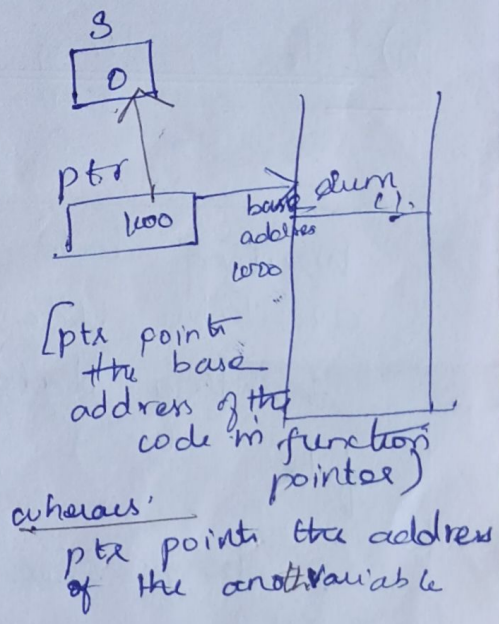 S
0
ptr
1000
base
address
1000
sum
().
[ptr point
the base
address of the
code in function
pointer)
whereas'
ptr point the address
of the anoth variable